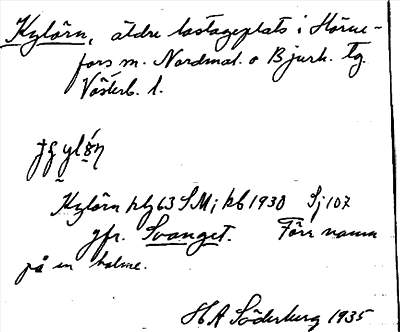 Kylörn, äldre lastageplats i Hörne-
fors m. Nordmal. o Bjurh. tg.
Västerb. l.
Kylörn hlg 63 SM; kb 1930 Sj 107
jfr. Svanget. Förr namn
på en holme.
H A Söderberg 1935